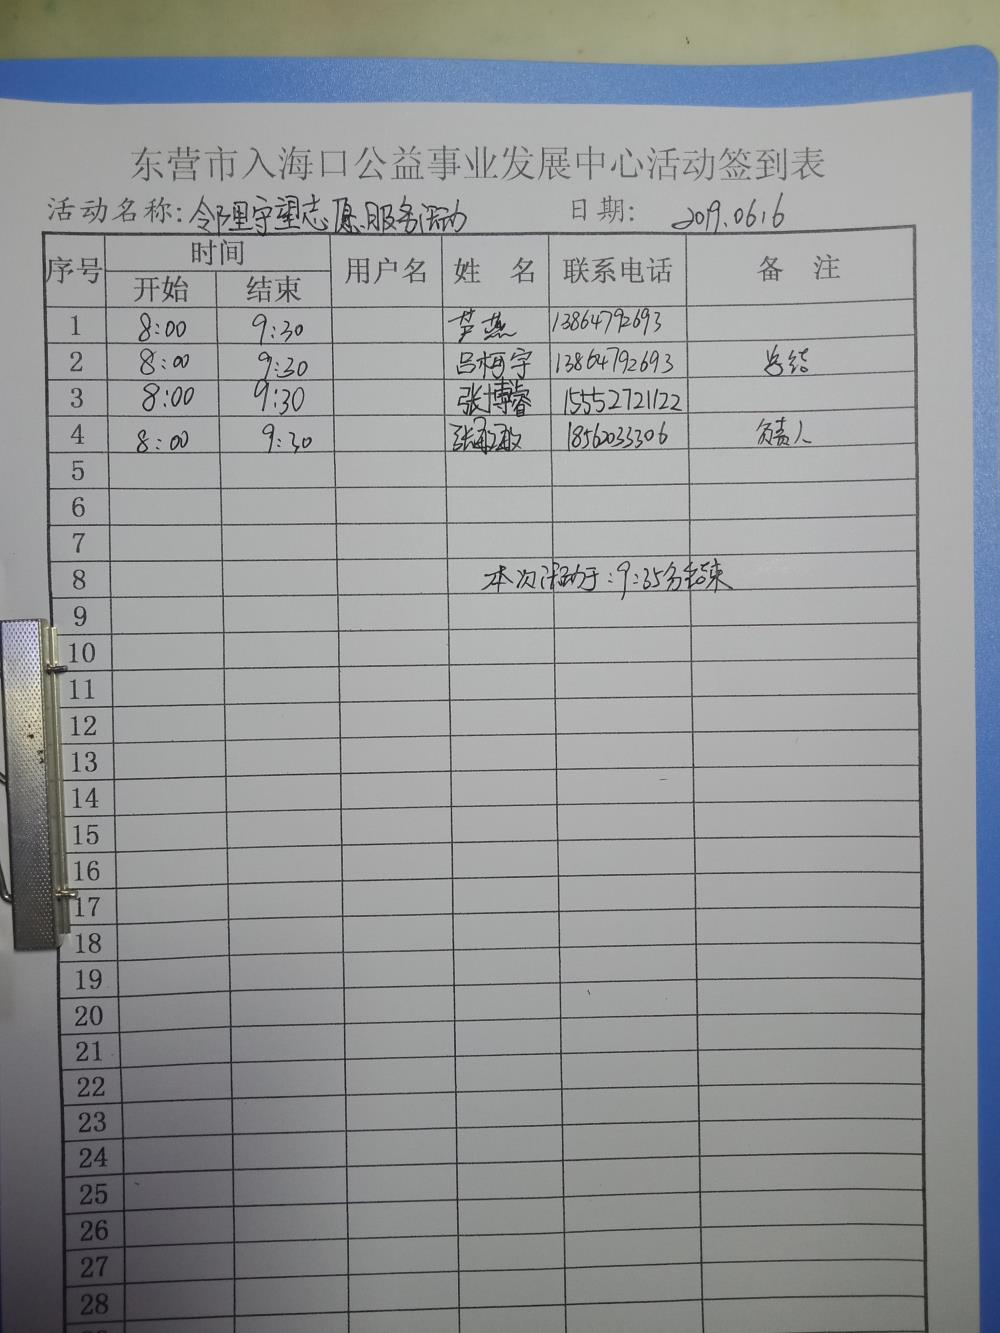 东营市入海口公益事业发展中心活动签到表
活动名称: 邻里守望志愿服务活动 日期: 2019.0616
序号 时间 用户名 姓 名 联系电话 备 注
开始 结束
1 8:00 9:30 芦燕 13864792693
2 8:00 9:30 吕柯宇 13864792693 总结
3 8:00 9:30 张博睿 15552721122
4 8:00 9:30 张敏敏 18562033306 负责人
5
6
7
8 本次活动于:9:35分结束
9
10
11
12
13
14
15
16
17
18
19
20
21
22
23
24
25
26
27
28